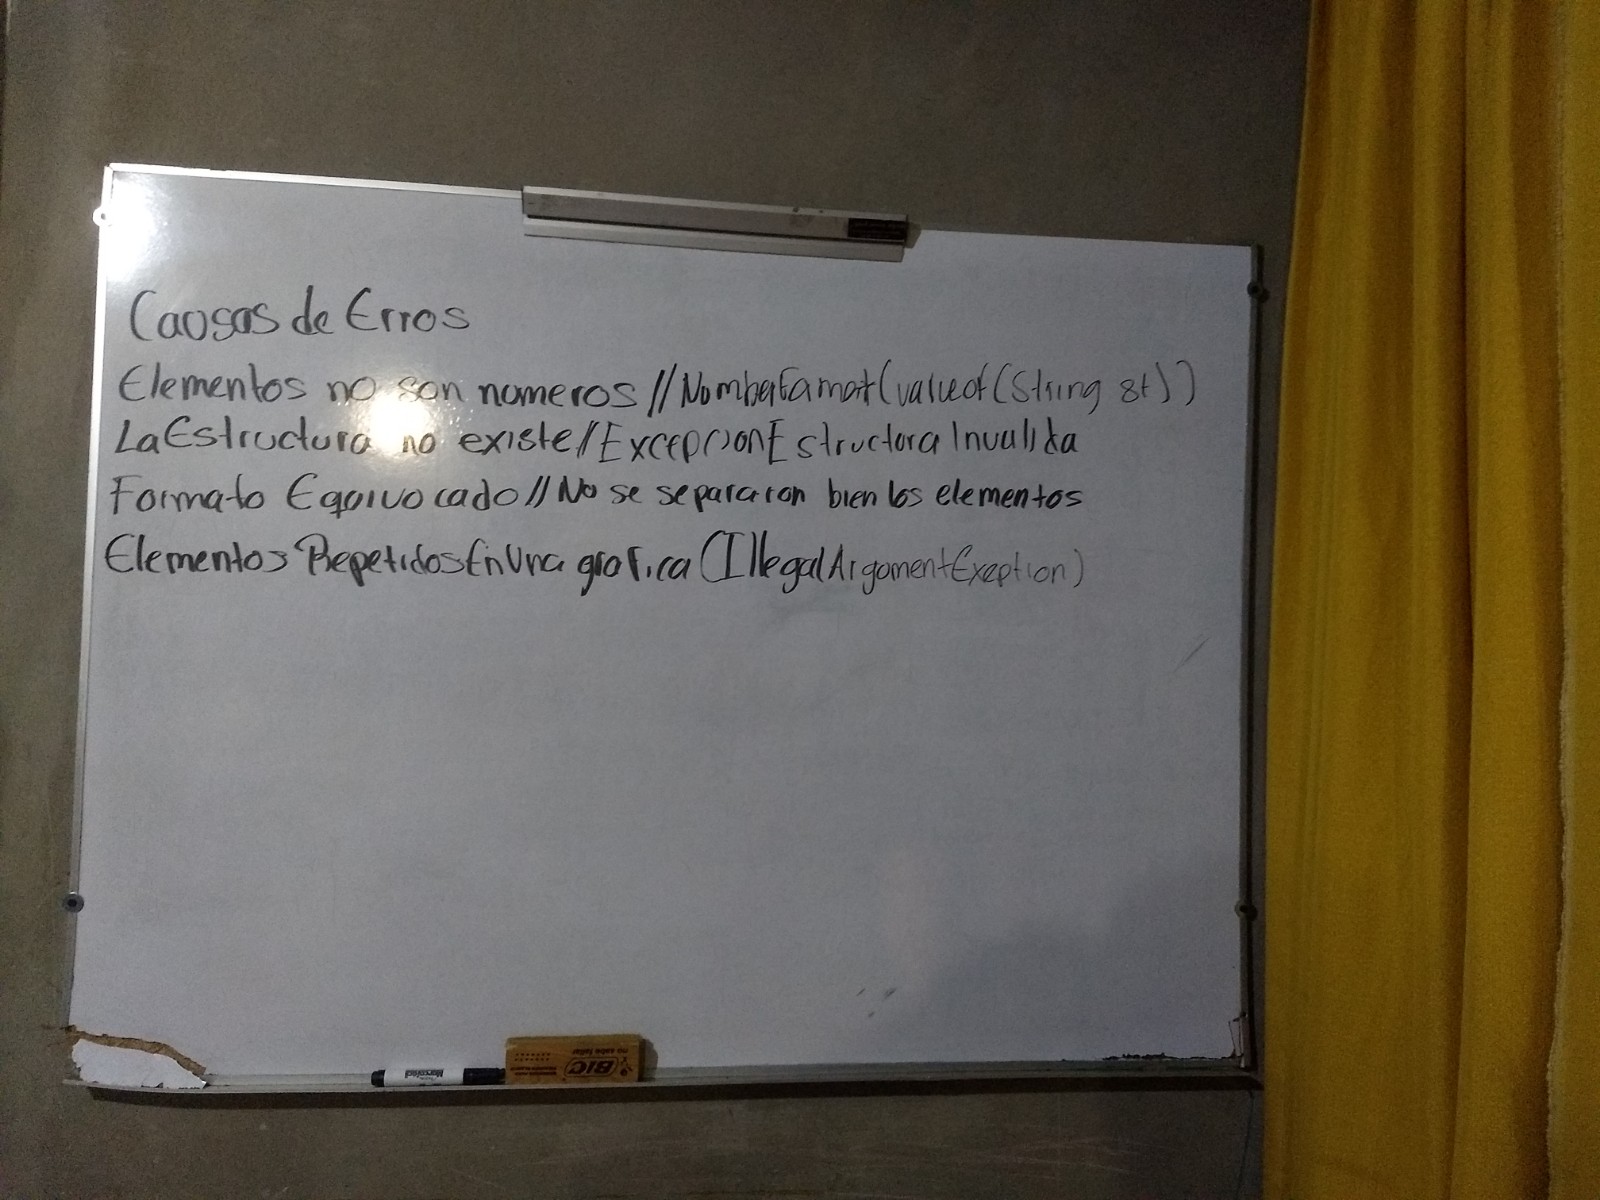 Causas de Erros
Elementos no son numeros // NumberFormat(valueof(String st))
La Estructura no existe // ExcepcionEstructuraInvalida
Formato Equivocado // No se separaron bien los elementos
Elementos Repetidos En Una grafica (IllegalArgumentExeption)
BIC
no sabe fallar